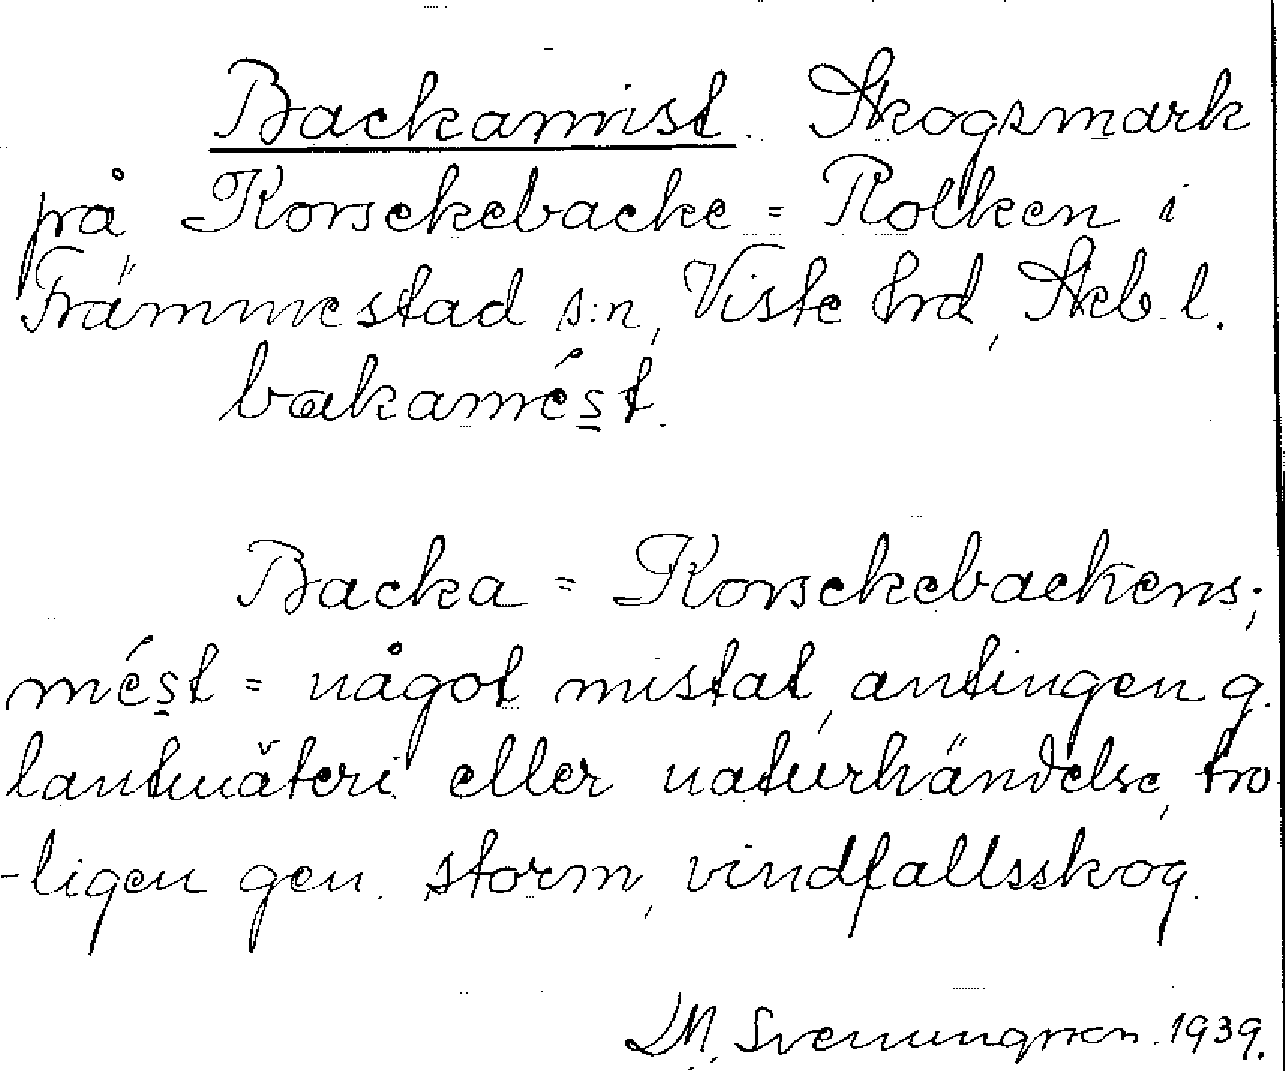 Backamist. Skogsmark
på Korsekebacke = Rolken i
Främmestad s:n, Viste hrd, Skb. l.
bakamést.
Backa = Korsekebackens;
mést = något mistat, antingen g.
lantmäteri eller naturhändelse, tro-
-ligen gen. storm, vindfallsskog.
LM. Svenungsson. 1939.